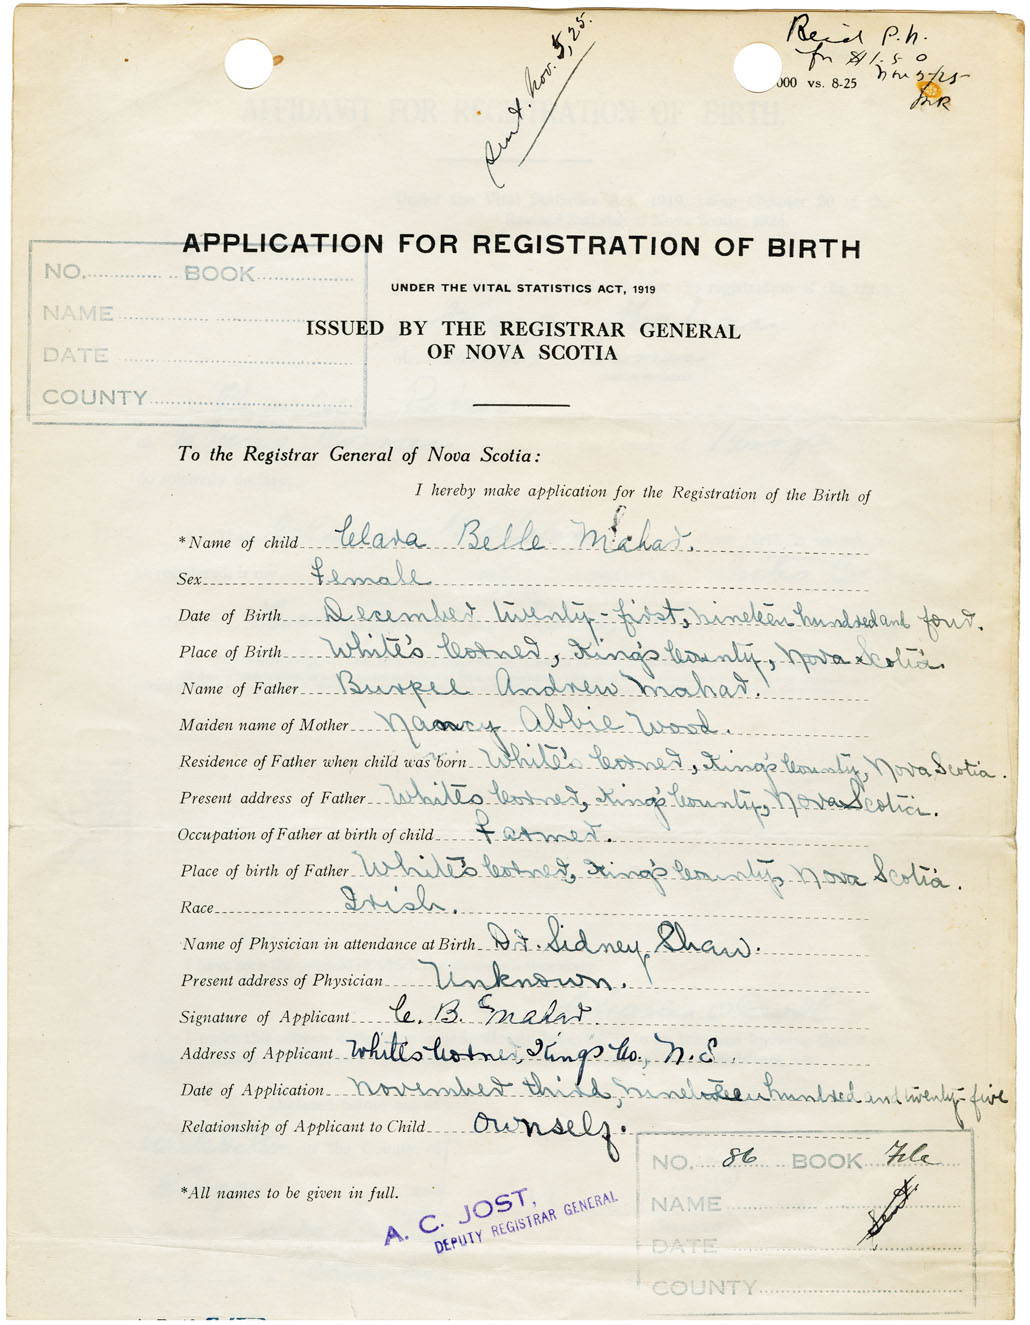 Sent. Nov. 5, 25.
Rec'd P.N.
for $1.50
Nov 5/25
000 vs. 8-25
APPLICATION FOR REGISTRATION OF BIRTH
UNDER THE VITAL STATISTICS ACT, 1919
ISSUED BY THE REGISTRAR GENERAL
OF NOVA SCOTIA
NO. BOOK
NAME
DATE
COUNTY
To the Registrar General of Nova Scotia:
I hereby make application for the Registration of the Birth of
*Name of child Clara Belle Mahar.
Sex Female
Date of Birth December twenty-first, nineteen hundred and four.
Place of Birth White's Corner, King's County, Nova Scotia.
Name of Father Burpee Andrew Mahar.
Maiden name of Mother Nancy Abbie Wood.
Residence of Father when child was born White's Corner, King's County, Nova Scotia.
Present address of Father White's Corner, King's County, Nova Scotia.
Occupation of Father at birth of child Farmer.
Place of birth of Father White's Corner, King's County, Nova Scotia.
Race Irish.
Name of Physician in attendance at Birth Dr. Sidney Shaw.
Present address of Physician Unknown.
Signature of Applicant C. B. Mahar.
Address of Applicant White's Corner, King's Co., N.S.
Date of Application November third, nineteen hundred and twenty-five
Relationship of Applicant to Child Ownself.
*All names to be given in full.
A. C. JOST,
DEPUTY REGISTRAR GENERAL
NO. 86 BOOK File
NAME
Sent.
DATE
COUNTY